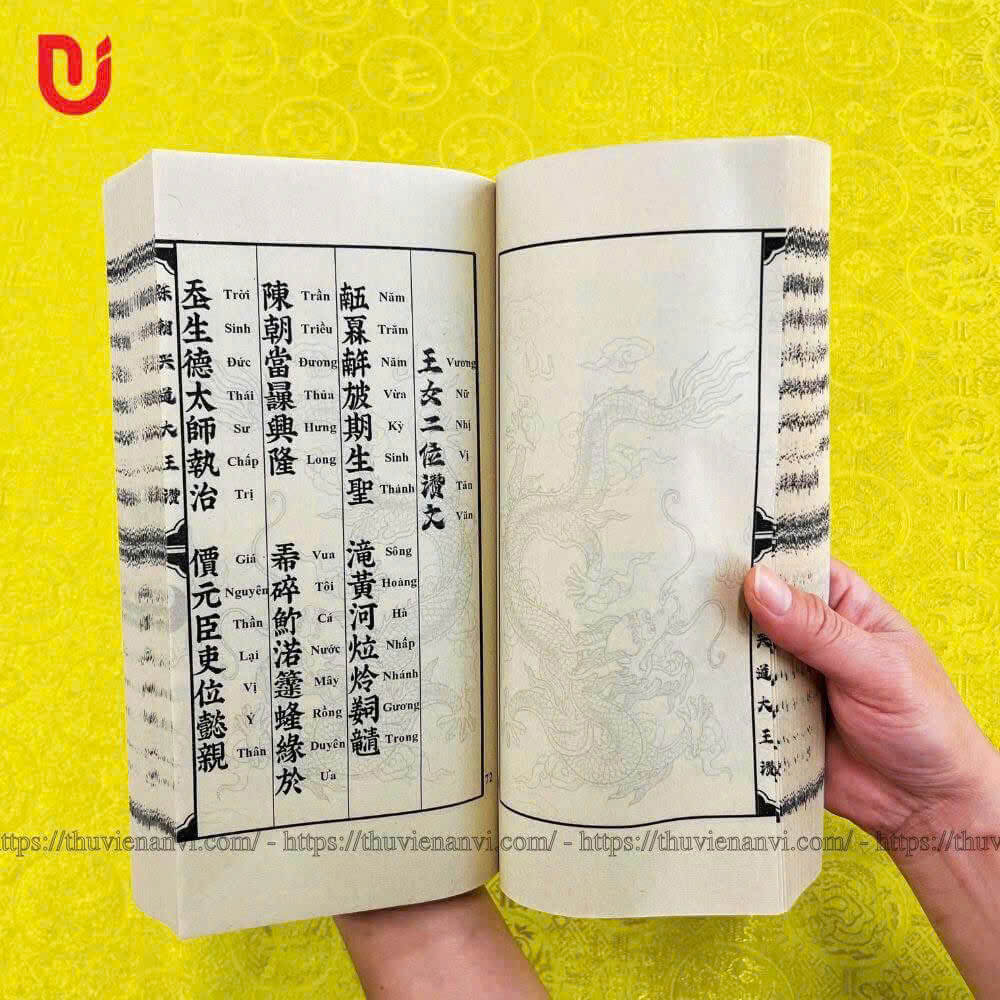 王女二位文
Vương Nữ Nhị Vị Tán Văn
期生聖
Năm Trăm Năm Vừa Kỳ Sinh Thánh
滝黃河
Sông Hoàng Hà Nhấp Nhánh Gương Trong
陳朝當興隆
Trần Triều Đương Thủa Hưng Long
碎渃緣於
Vua Tôi Cá Nước Mây Rồng Duyên Ưa
生德太師執治
Trời Sinh Đức Thái Sư Chấp Trị
價元臣吏位懿親
Giá Nguyên Thần Lại Vị Ý Thân
陳朝興道大王
72
道大王
https://thuvienanvi.com/ - https://thuvienanvi.com/ - https://thuvienanvi.com/ - https://thuvienanvi.com/